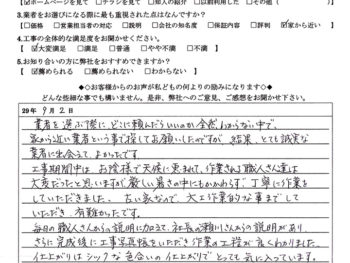 ☑ホームページを見て □チラシを見て □知人の紹介 □以前利用した □その他(
3.業者をお選びになる際に最も重視された点はなんですか?
【□価格 □営業担当者の対応 □説明 □会社の知名度 □保証内容 □評判 ☑家から近い】
4.工事の全体的な満足度をお聞かせください。
【☑大変満足 □満足 □普通 □やや不満 □不満 】
5.お知り合いの方に弊社をおすすめできますか?
【☑薦められる □薦められない □わからない】
◆◇お客様からのお声が私どもの何よりの励みになります◇◆
どんな些細な事でも構いません。是非、弊社へのご意見、ご感想をお聞かせ下さい。
29年 9月 2日
業者を選ぶ際に、どこに頼んだらいいのか全然わからない中で、
家から近い業者という事で探してお願いしたのですが、結果、とても誠実な
業者に出会えて、よかったです。
工事期間中は、お陰様で天候に恵まれて、作業される職人さん達は
大変だったと思いますが厳しい暑さの中にもかかわらず、丁寧に作業を
していただきました。古い家なので、大工作業的な事までして
いただき、有難かったです。
毎日の職人さんからの説明に加えて、社長の瀬川さんからの説明があり、
さらに完成後に工事写真帳をいただき作業の工程が良くわかりました。
仕上がりはシックな色合いの仕上がりでとっても気に入っています。